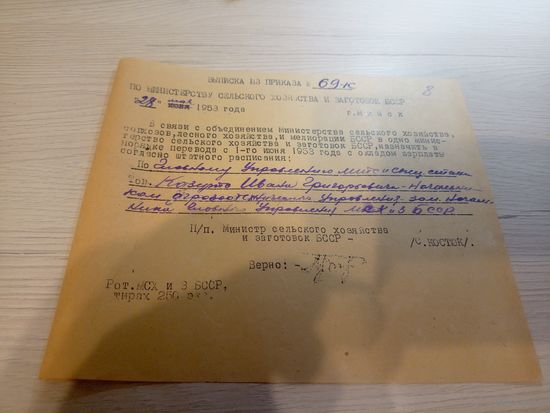 ВЫПИСКА ИЗ ПРИКАЗА № 69-к
8
ПО МИНИСТЕРСТВУ СЕЛЬСКОГО ХОЗЯЙСТВА И ЗАГОТОВОК БССР
"28" мая июня 1953 года г.Минск
В связи с объединением Министерства сельского хозяйства,
совхозов, лесного хозяйства, и мелиорации БССР в одно минис-
терство сельского хозяйства и заготовок БССР, назначить в
порядке перевода с 1-го июня 1953 года с окладом зарплаты
согласно штатного расписания:
По Главному Управлению МТС и спец. станций
тов. Иван Григорьевич - Начальни-
ком Управления зам. Нача-
льника Главного Управления МСХ и З БССР
П/п. Министр сельского хозяйства
и заготовок БССР - /С.КОСТЮК/.
Верно: -
Рот. МСХ и З БССР,
тираж 250 экз.